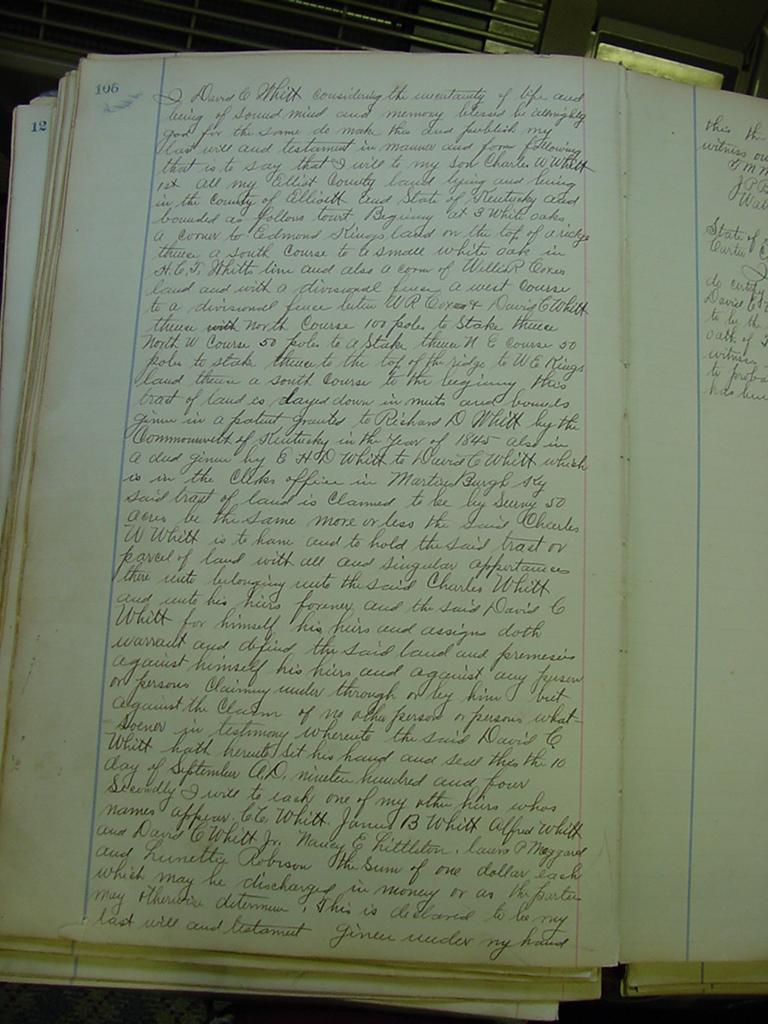 106
12
I David C Whitt considering the uncertainty of life and
being of sound mind and memory blessed be allmighty
god for the same do make this and publish my
last will and testament in manner and form following
that is to say that I will to my son Charles W Whitt
1st All my Elliot County land lying and being
in the County of Elliott and State of Kentucky and
bounded as follows towit Beginny at 3 White oaks
a corner to Edmond Kings land on the top of a ridge
thence a south course to a small white oak in
H.C.T. Whitts line and also a corn of Willis R Coxes
land and with a divisional fence a west course
to a divisional fence betwn W R Coxes & David C Whitt
thence with North Course 100 poles to Stake thence
North W Course 50 poles to a Stake thence N E course 50
poles to stake thence to the top of the ridge to W E Kings
land thence a south course to the beginny this
tract of land is layed down in meets and bounds
given in a patent granted to Richard D Whitt by the
Commonwealth of Kentucky in the Year of 1845 also in
a deed given by E H D Whitt to David C Whitt which
is in the Clerks office in Martins Burgh Ky
said tract of land is Claimed to be by Survy 50
acres be the same more or less the said Charles
W Whitt is to have and to hold the said tract or
parcel of land with all and singular appertainces
there unto belonging unto the said Charles Whitt
and unto his heirs forever and the said David C
Whitt for himself his heirs and assigns doth
warrant and defind the said land and premesis
against himself his hiers and against any person
or persons Claiming under through or by him but
against the Claim of no other person or persons what-
soever in testimony whereunto the said David C
Whitt hath hereunto set his hand and seal this the 10
day of September A.D. nineteen hundred and four
Secondly I will to each one of my other heirs whos
names appear. C.C. Whitt. James B Whitt Alfred Whitt
and David C Whitt Jr. Nancy E Littleton. Laura P Maggard
and Lunettie Robison the sum of one dollar each
which may be discharged in money or as the parties
may otherwise determine. This is declared to be my
last will and testament given under my hand
this the
witness our
State of
Carter
do certify
David C
to be the
oath of
witness
to probate
has been